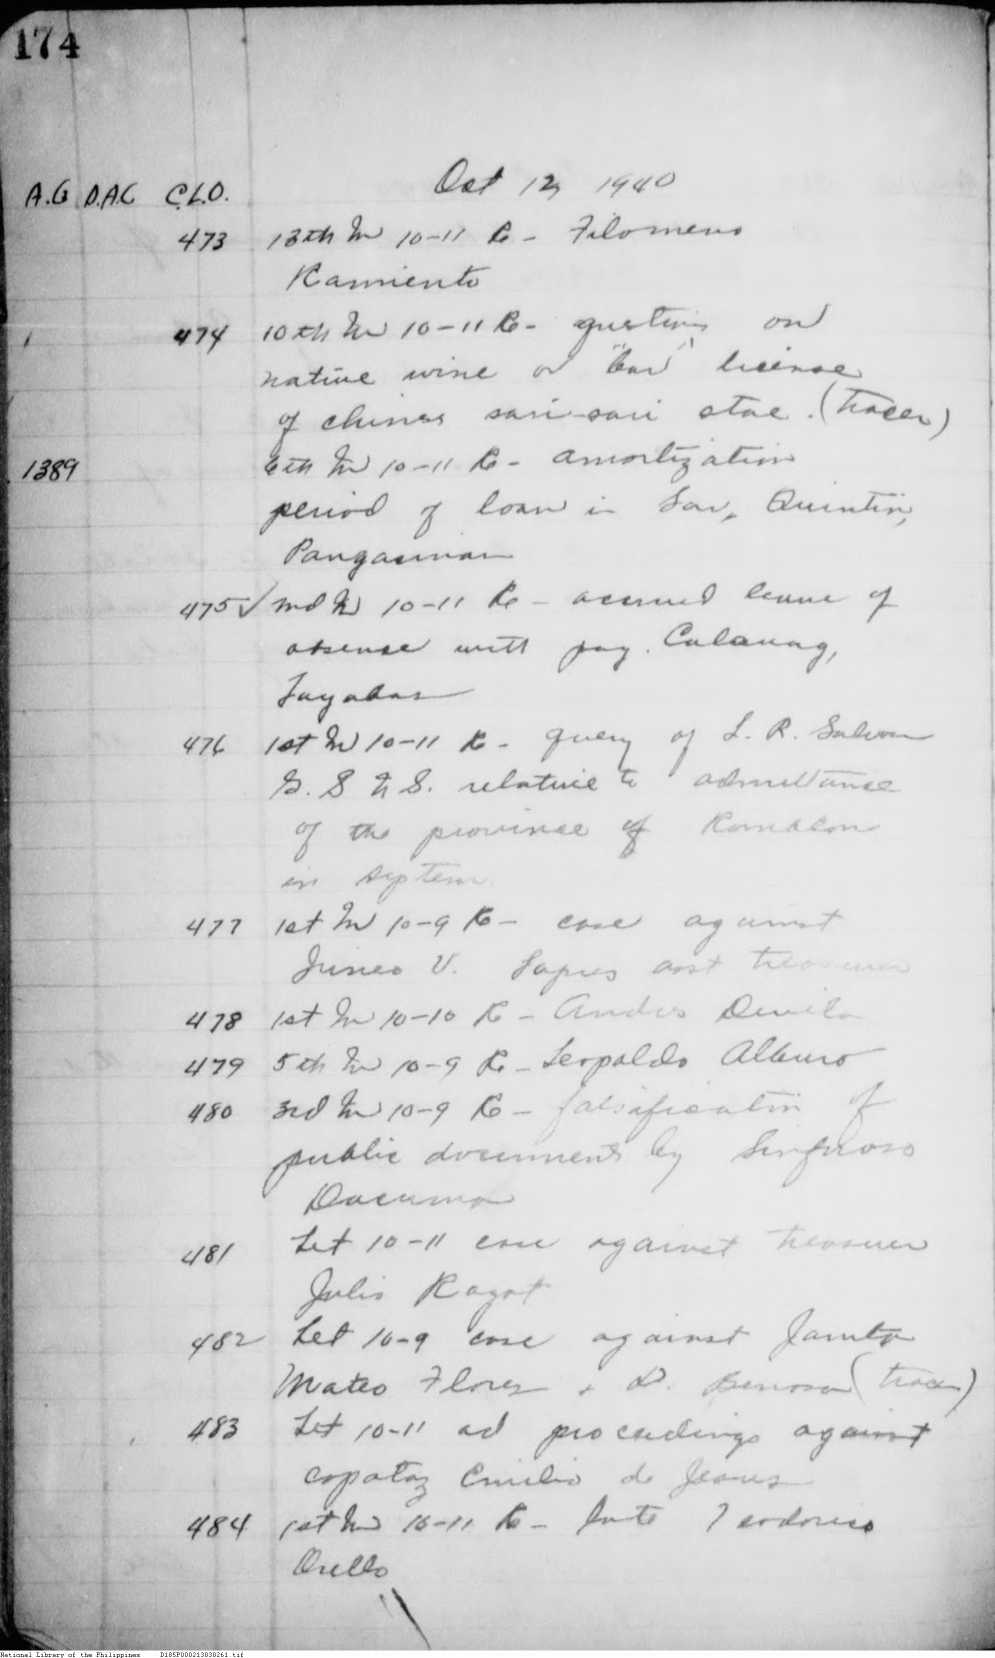 174
Oct 12, 1940
A.G D.A.C C.L.O.
473 13th In 10-11 Re- Filomeno
Ramiento
474 10th In 10-11 Re- question on
native wine or "bar" license
of chinese sari-sari store. (tracer)
1389 6th In 10-11 Re- amortization
period of loan in San Quintin,
Pangasinan
475 ✓ 2nd In 10-11 Re- accrued leave of
absence with pay. Calauag,
Tayabas
476 1st In 10-11 Re- query of L. R.
G. S. & S. relative to admittance
of the province of Romblon
in system
477 1st In 10-9 Re- case against
V. asst treasurer
478 1st In 10-10 Re- Andres
479 5th In 10-9 Re- Leopoldo Alburo
480 3rd In 10-9 Re- falsification of
public documents by Sinforoso
481 Let 10-11 case against treasurer
Julio Ragat
482 Let 10-9 case against
Mateo Flores & D. (tracer)
483 Let 10-11 ad proceedings against
capataz Emilio de Jesus
484 1st In 10-11 Re- Teodorico
Orello
National Library of the Philippines D185P000213838261.tif